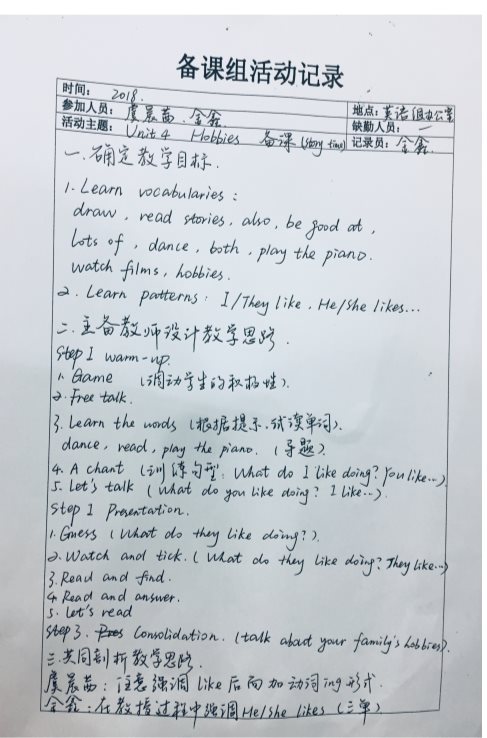 备课组活动记录
时间： 2018.
地点：英语组办公室
参加人员：虞晨茜、金鑫
缺勤人员：—
活动主题：Unit 4 Hobbies 备课 (story time)
记录员：金鑫
一.确定教学目标.
1. Learn vocabularies :
draw, read stories, also, be good at,
lots of, dance, both, play the piano.
watch films, hobbies.
2. Learn patterns : I/They like, He/She likes...
二.主备教师设计教学思路.
Step 1 warm-up.
1. Game (调动学生的积极性).
2. Free talk.
3. Learn the words (根据提示,试读单词).
dance, read, play the piano. (导题)
4. A chant (训练句型: What do I like doing? You like...)
5. Let's talk (What do you like doing? I like...).
Step 1 Presentation.
1. Guess (What do they like doing?).
2. Watch and tick. (What do they like doing? They like...)
3. Read and find.
4. Read and answer.
5. Let's read
Step 3. Consolidation. (talk about your family's hobbies).
三.共同剖析教学思路.
虞晨茜：注意强调 like 后面加动词ing形式.
金鑫：在教授过程中强调He/She likes (三单)